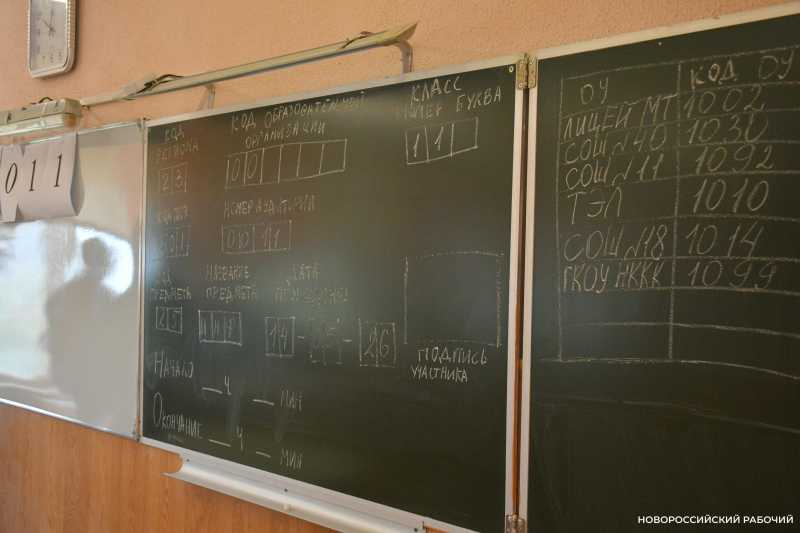 0 1 1
КОД РЕГИОНА
2 3
КОД ОБРАЗОВАТЕЛЬНОЙ
ОРГАНИЗАЦИИ
0 0
КЛАСС
НОМЕР БУКВА
1 1
НОМЕР АУДИТОРИИ
0 0 1 1
ПРЕДМЕТА
НАЗВАНИЕ
ПРЕДМЕТА
ДАТА
2 5
14 - - 26
ПОДПИСЬ
УЧАСТНИКА
НАЧАЛО __ Ч __ МИН
ОКОНЧАНИЕ __ Ч __ МИН
ОУ КОД ОУ
ЛИЦЕЙ МТ 1002
СОШ №40 1030
СОШ №11 1092
ТЭЛ 1010
СОШ №18 1014
ГКОУ НККК 1099
НОВОРОССИЙСКИЙ РАБОЧИЙ